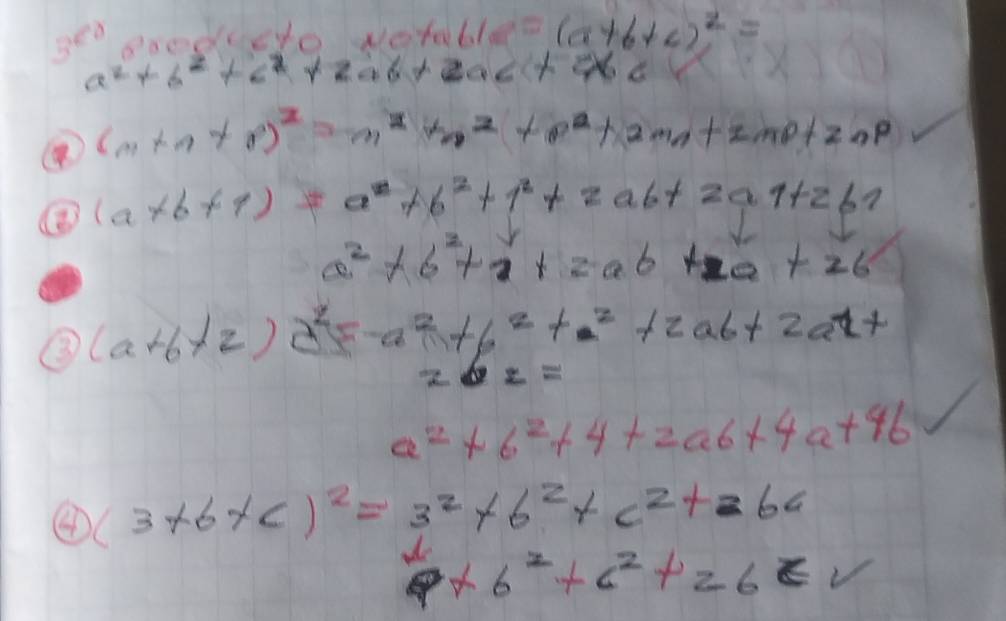 3er Producto Notable = (a+b+c)² =
a² + b² + c² + 2ab + 2ac + 2bc
① (m+n+p)² = m² + n² + p² + 2mn + 2mp + 2np ✓
② (a+b+1) = a² + b² + 1² + 2ab + 2a1 + 2b1
a² + b² + 1 + 2ab + 2a + 2b
③ (a+b+2)² = a² + b² + 2² + 2ab + 2a2 +
2b2 =
a² + b² + 4 + 2ab + 4a + 4b ✓
④ (3+b+c)² = 3² + b² + c² + 2bc
9 + b² + c² + 2bc ✓